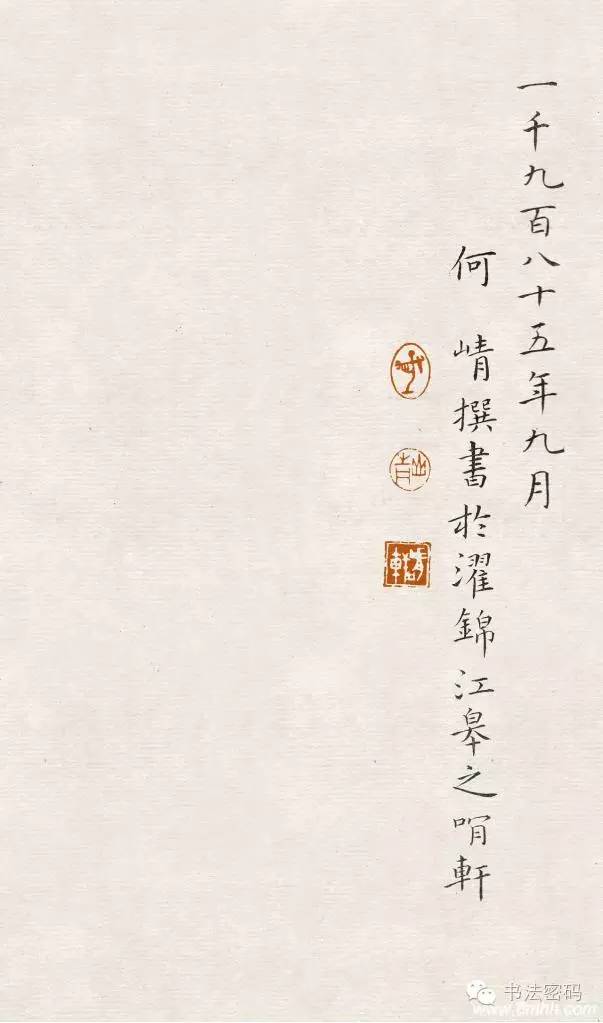 一千九百八十五年九月
何 崝撰書於濯錦江皋之軒
书法密码